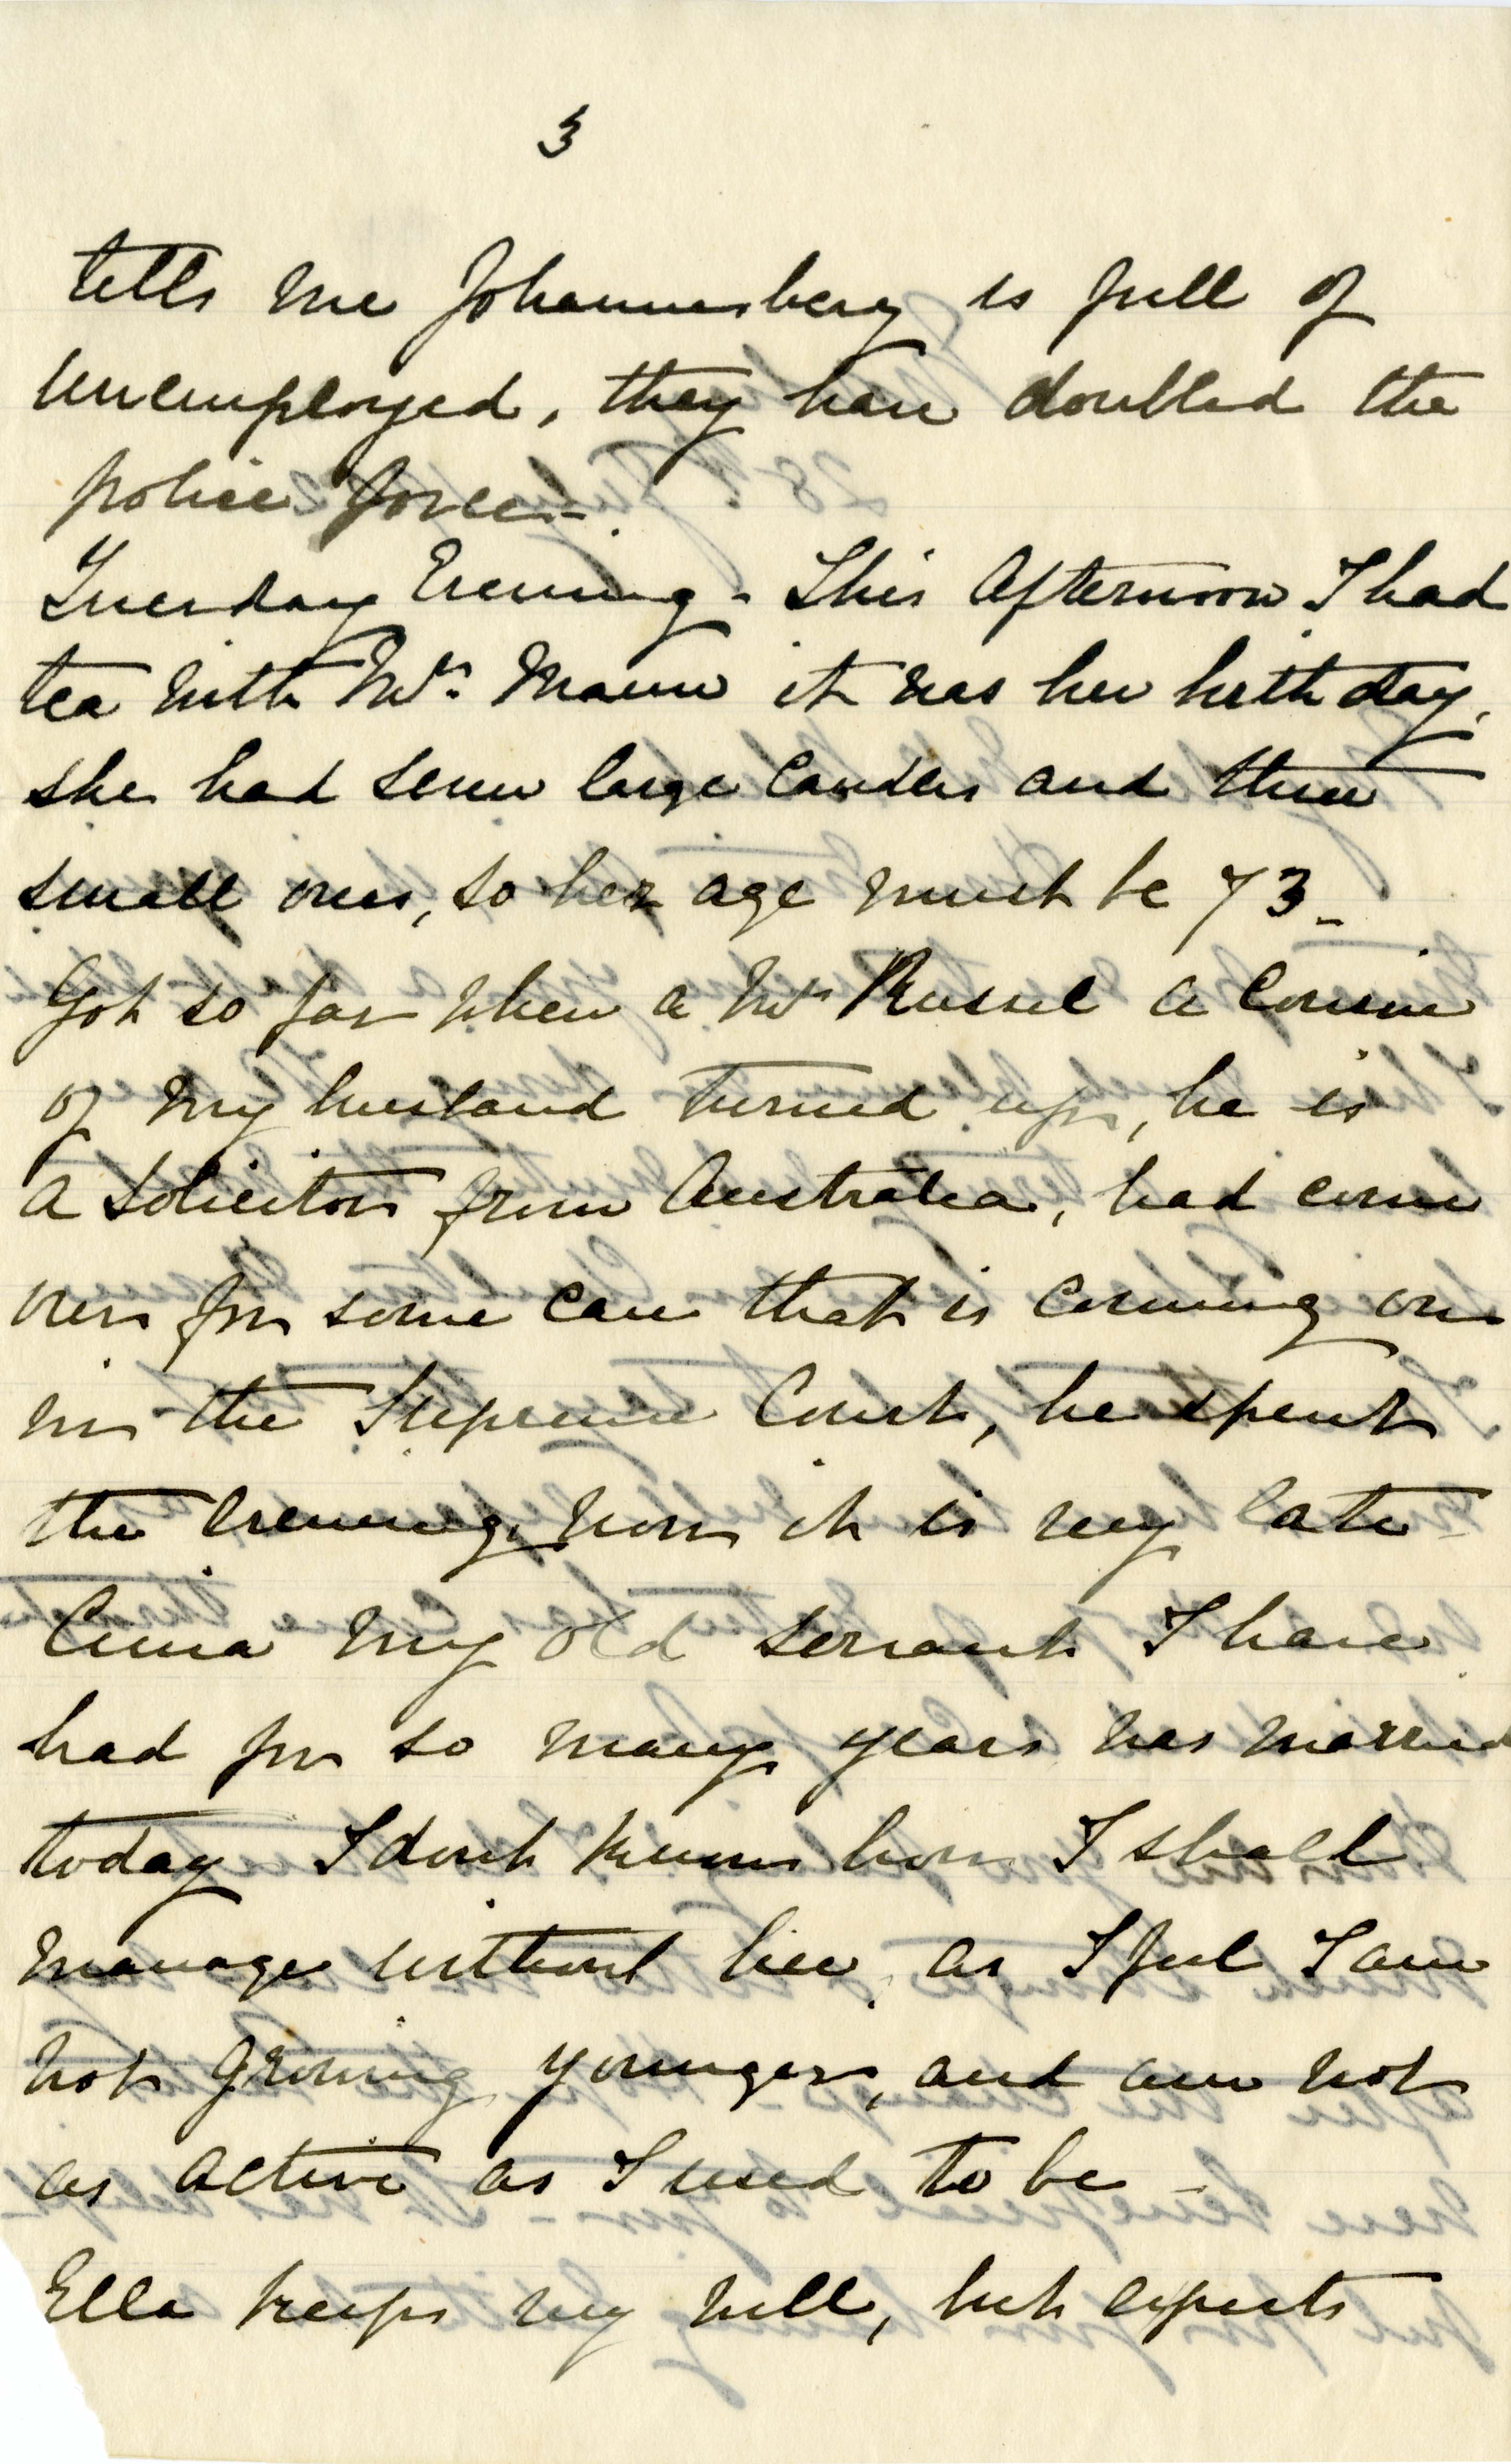 3
tells me Johannesberg is full of
unemployed, they have doubled the
police force -
Tuesday Evening - This Afternoon I had
tea with Mrs. Mann it was her birthday,
she had seven large Candles and three
small ones, so her age must be 73 -
Got so far when a Mr Russel a Cousin
of my husband turned up, he is
a Solicitor from Australia, had come
over for some case that is coming on
in the Supreme Court, he spent
the evening, now it is very late -
my old servant I have
had for so many years was married
today I dont know how I shall
manage without her, as I feel I am
not growing younger, and am not
as active as I used to be -
Ella keeps very well, but expects